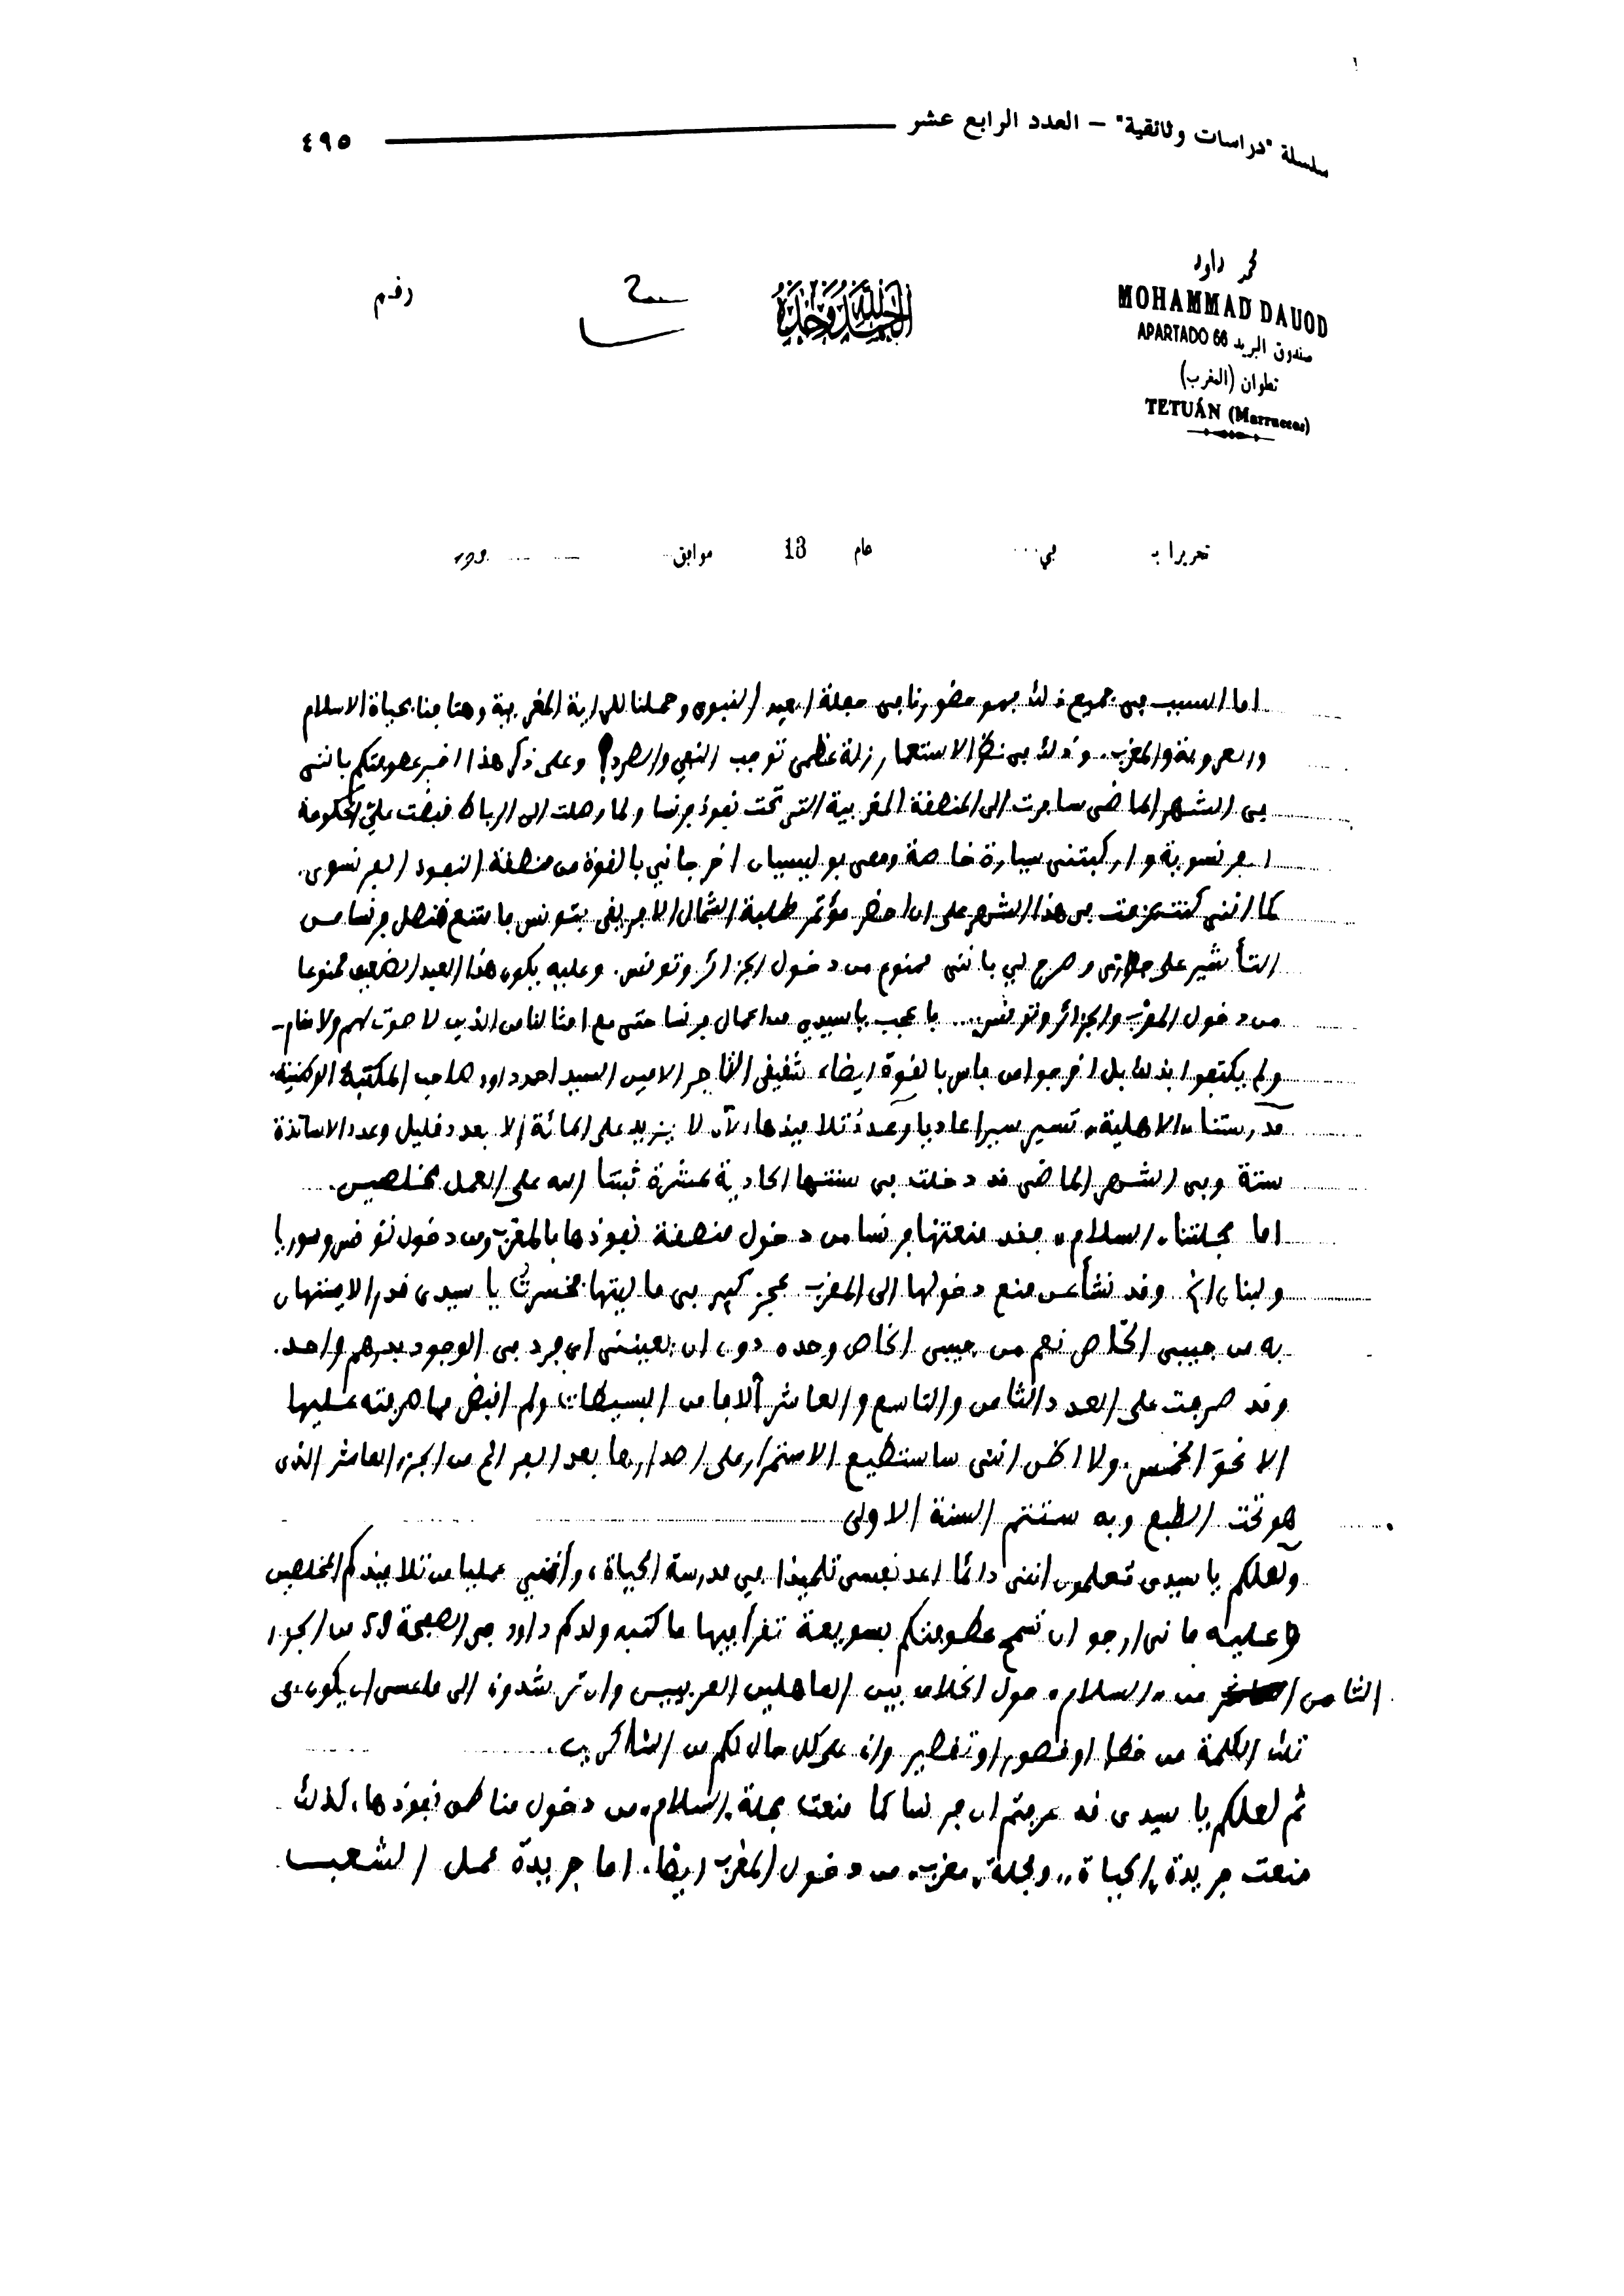 سلسلة "دراسات وثائقية" – العدد الرابع عشر ٤٩٥
محمد داود
MOHAMMAD DAUOD
APARTADO 66 صندوق البريد
تطوان (المغرب)
TETUÁN (Marruecos)
الحمد لله وحده
رقم
تحريرا بـ في عام 13 موافق 193
اما السبب في جميع ذلك فهو حضورنا في حفلة العيد النبوي وحملنا للراية المغربية وهتافنا بحياة الاسلام
والعروبة والمغرب. وذلك في نظر الاستعمار زلة عظمى توجب النفي والطرد؟ وعلى ذكر هذا اخبر عطوفتكم بانني
في الشهر الماضي سافرت الى المنطقة المغربية التي تحت نفوذ فرنسا ولما وصلت الى الرباط قبضت علي الحكومة
الفرنسوية واركبتني سيارة خاصة ومعي بوليسيان اخرجاني بالقوة من منطقة النفوذ الفرنسوي.
كما انني كنت عزمت في هذا الشهر على ان احضر مؤتمر طلبة الشمال الافريقي بتونس فامتنع قنصل فرنسا من
التأشير على جوازي وصرح لي بانني ممنوع من دخول الجزائر وتونس. وعليه يكون هذا العبد الضعيف ممنوعا
من دخول المغرب والجزائر وتونس... فاعجب ياسيدي من اعمال فرنسا حتى مع امثالنا من الذين لا صوت لهم ولا مقام ـ
ولم يكتفوا بذلك بل اخرجوا من فاس بالقوة ايضا، شقيقي التاجر الامين السيد احمد داود صاحب المكتبة الوطنية.
مدرستنا "الاهلية" تسير سيرا عاديا وعدد تلاميذها الآن لا يزيد على المائة إلا بعدد قليل وعدد الاساتذة
ستة وفي الشهر الماضي قد دخلت في سنتها الحادية عشرة ثبتنا الله على العمل مخلصين.
اما مجلتنا "السلام" فقد منعتها فرنسا من دخول منطقة نفوذها بالمغرب ومن دخول تونس وسوريا
ولبنان الخ. وقد نشأ عن منع دخولها الى المغرب عجز كبير في ماليتها فخسرت يا سيدي قدرا لا يستهان
به من جيبي الخاص نعم من جيبي الخاص وحده دون ان يعينني اي فرد في الوجود بدرهم واحد.
وقد صرفت على العدد الثامن والتاسع والعاشر آلافا من البسيطات ولم اقبض مما صرفته عليها
الا نحو الخمس. ولا اظن انني ساستطيع الاستمرار على اصدارها بعد الفراغ من الجزء العاشر الذي
هو تحت الطبع وبه ستتم السنة الاولى
ولعلكم يا سيدي تعلمون انني دائما اعد نفسي تلميذا في مدرسة الحياة، وأنني عمليا من تلاميذكم المخلصين
وعليه فانني ارجو ان تسمح عطوفتكم بسويعة تقرأ فيها ما كتبه ولدكم داود في الصفحة 59 من الجزء
الثامن من "السلام" حول الخلاف بين العاهلين العربيين وان ترشدوه الى ما عسى ان يكون في
تلك الكلمة من خطا او قصور او تقصير وانه على كل حال لكم من الشاكرين.
ثم لعلكم يا سيدي قد عرفتم ان فرنسا كما منعت مجلة "السلام" من دخول مناطق نفوذها، كذلك
منعت جريدة "الحياة" ومجلة "مغرب" من دخول المغرب ايضا. اما جريدة عمل الشعب